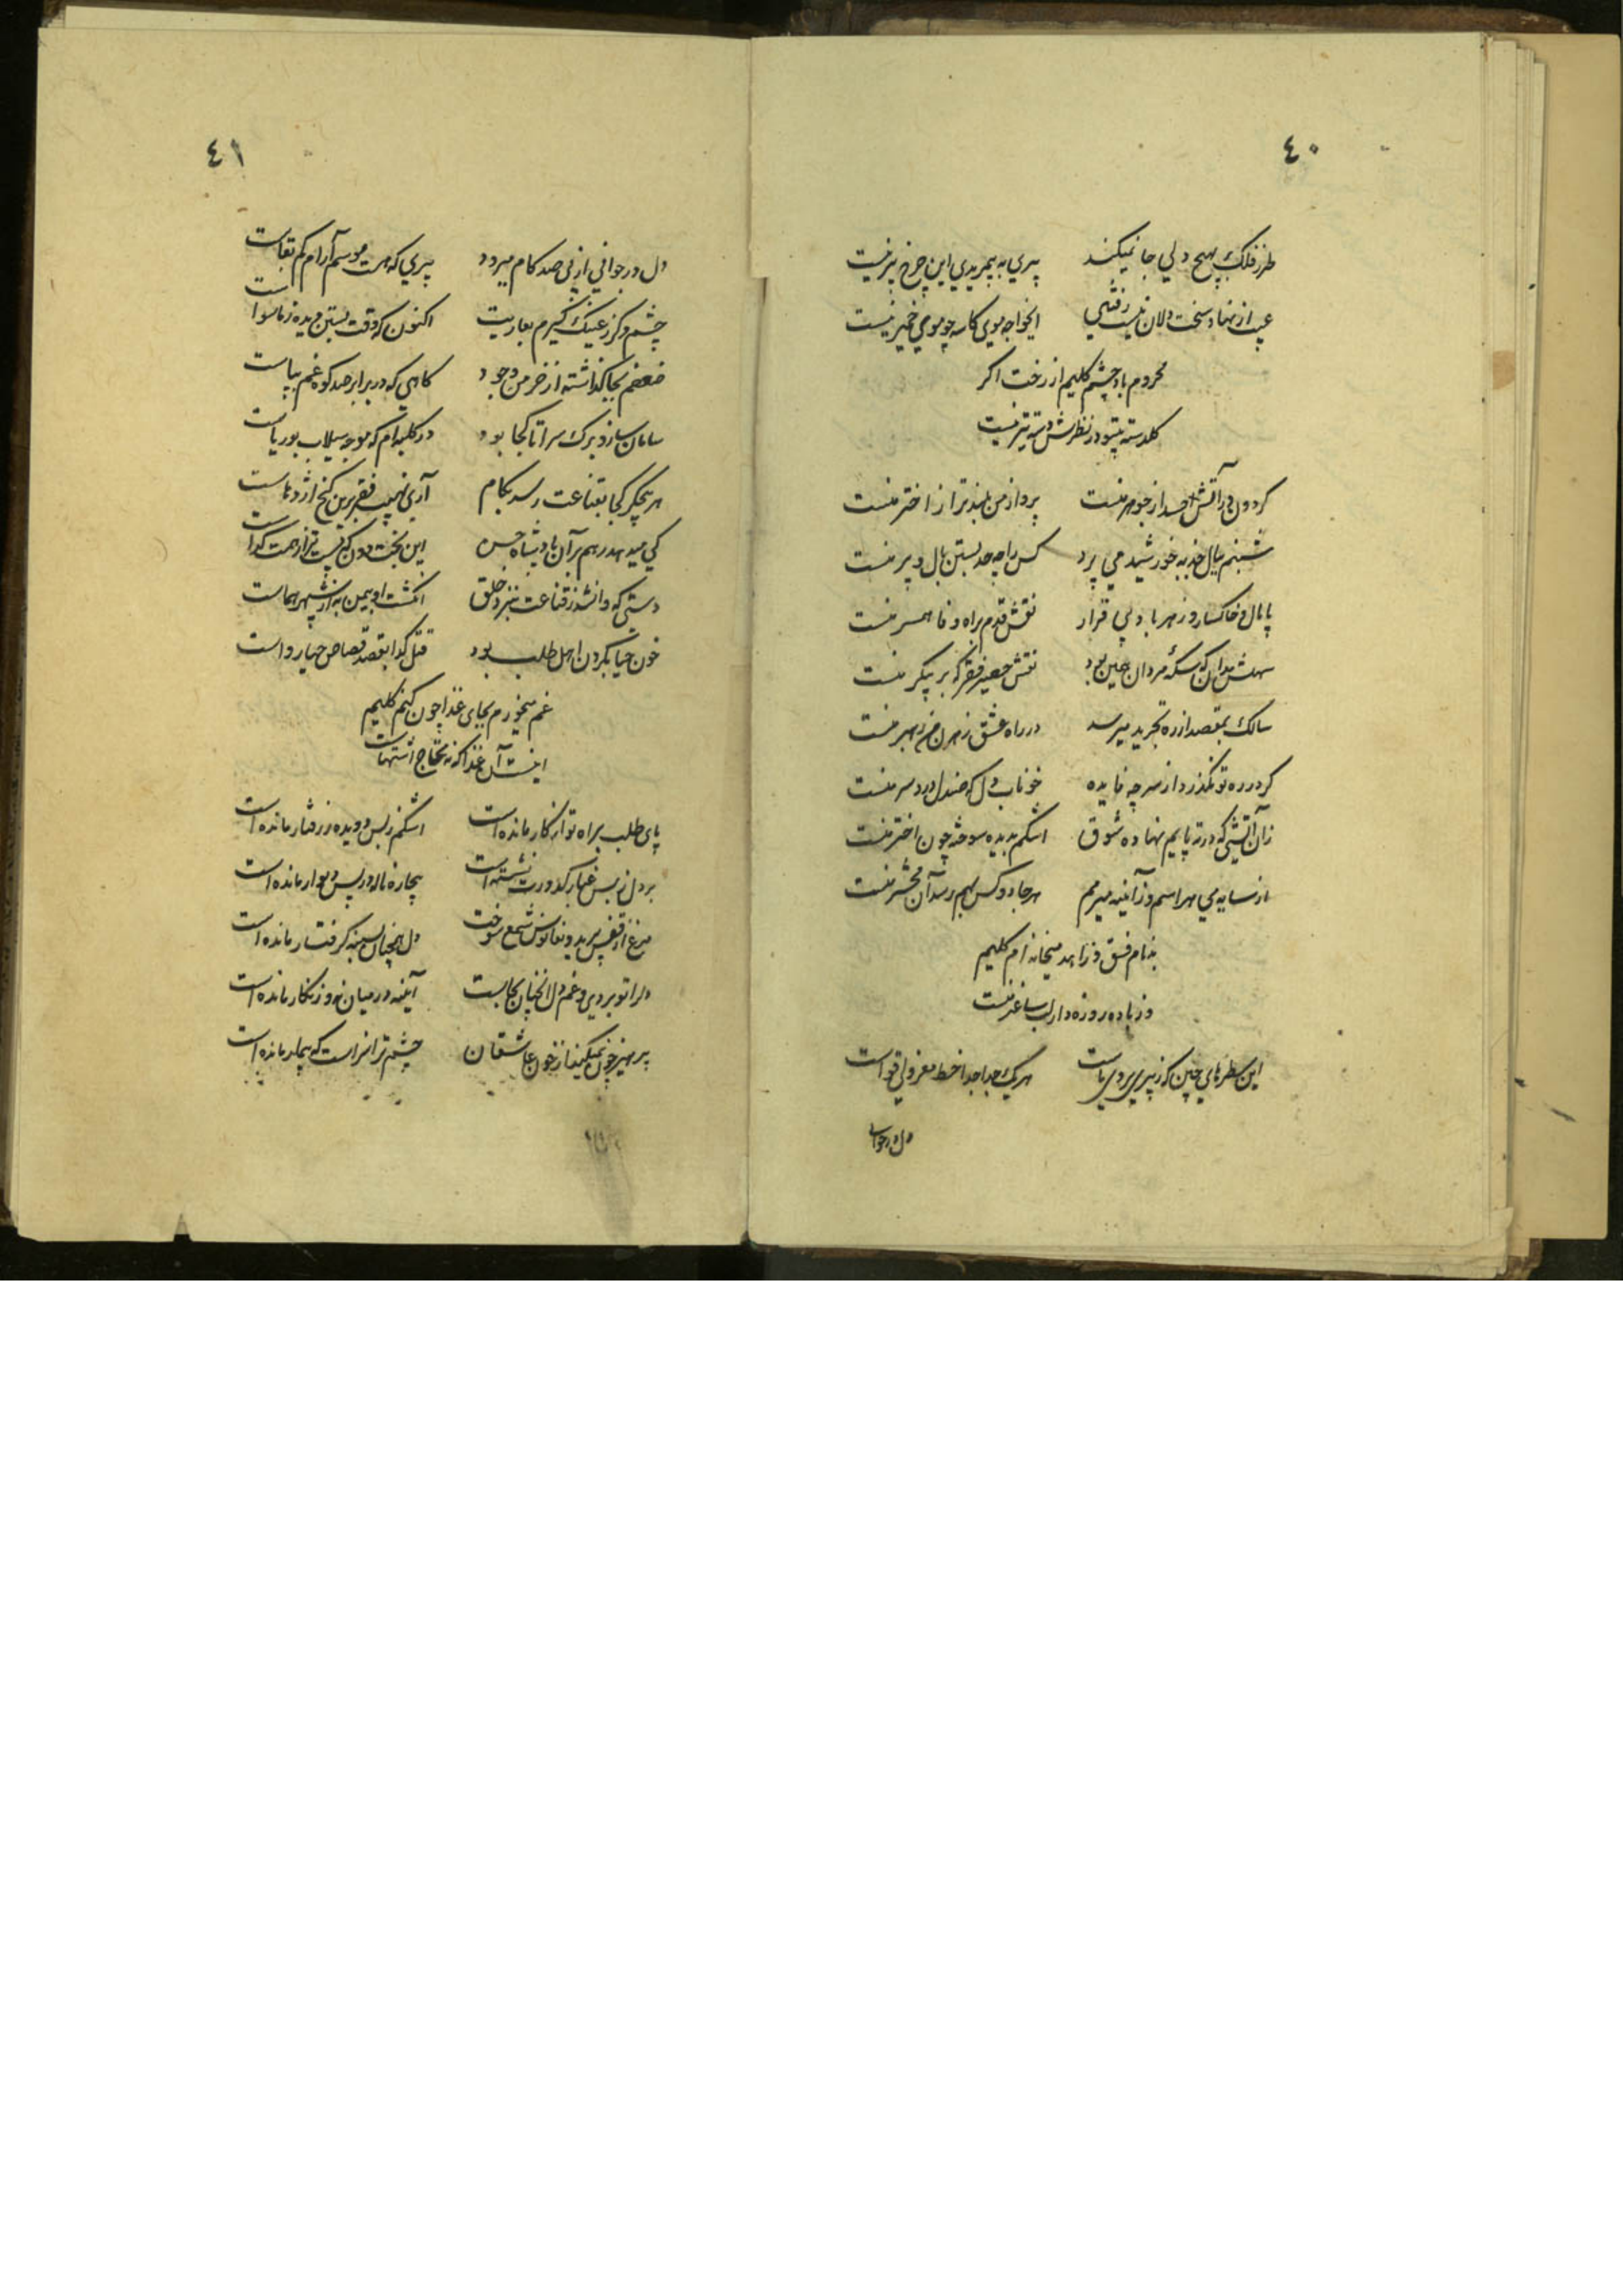 ٤٠
طرز فلک بهیچ دلی جا نمیکند پیری به بیمریدی این چرخ پیر نیست
عیب از نهاد سخت دلان نیست رفتنی ایخواجه موی کاسه چو موی خمیر نیست
محروم باد چشم کلیم از رخت اکر
کلدسته بیتو در نظرش دسته تیر نیست
کردون در آتش از جوهر منست پرواز من بلندتر از اختر منست
شبنم ببال جذبه خورشید می پرد کس را چه حد بستن بال و پر منست
پامال و خاکسار و ز هر باد بی قرار نقش قدم براه وفا همسر منست
سهلش مدان که سکه مردان همین بود نقش حصیر فقر که بر پیکر منست
سالک بمقصد از ره تجرید میرسد در راه عشق رهزن من رهبر منست
کر درد ره تو نکذرد از سر چه فایده خوناب دل که صندل درد سر منست
زان آتشی که در ته پایم نهاده شوق اشکم بدیده سوخته چون اختر منست
از سایه می هراسم وز آئینه میرمم هر جا دو کس بهم رسد آن محشر منست
بدنام فسق و زاهد میخانه ام کلیم
وز باده روزه دار لب ساغر منست
این سطرهای چین که ز پیری بروی ماست هر یک جدا جدا خط معزولی قواست
دل در جوانی
٤١
دل در جوانی از پی صد کام میرود پیری که هست موسم آرام کم بقاست
چشم دکر ز عینک کیرم بعاریت اکنون که وقت بستن دیده ز ماسواست
ضعفم بجا کذاشته از خرمن وجود کاهی که در برابر صد کوه غم بپاست
سامان ساز و برک سرا تا کجا بود در کلبه ام که موجه سیلاب بوریاست
هر بیجکر کجا بقناعت رسد بکام آری نهیب فقر برین کنج اژدهاست
کی میدهد رهم بر آن پادشاه حسن این بخت دون که پست تر از همت کداست
دستی که وا نشد ز قناعت بنزد خلق انکشت او بیمن به از شهپر هماست
خون حیا بکردن اهل طلب بود قتل کدا بقصد قصاص حیا رواست
غم میخورم بجای غذا چون کنم کلیم
اینست آن غذا که نه محتاج اشتهاست
پای طلب براه تو از کار مانده است اشکم ز بس دویده ز رفتار مانده است
بر دل ز بس غبار کدورت نشسته است بیچاره ناله در پس دیوار مانده است
مرغ از قفس پرید و بفانوس شمع سوخت دل همچنان بسینه کرفتار مانده است
دلرا تو بردی و غم دل آنچنان بجاست آئینه در میان نه و زنکار مانده است
پرهیز چون نمیکند از خون عاشقان چشم ترا سزاست که بیمار مانده است